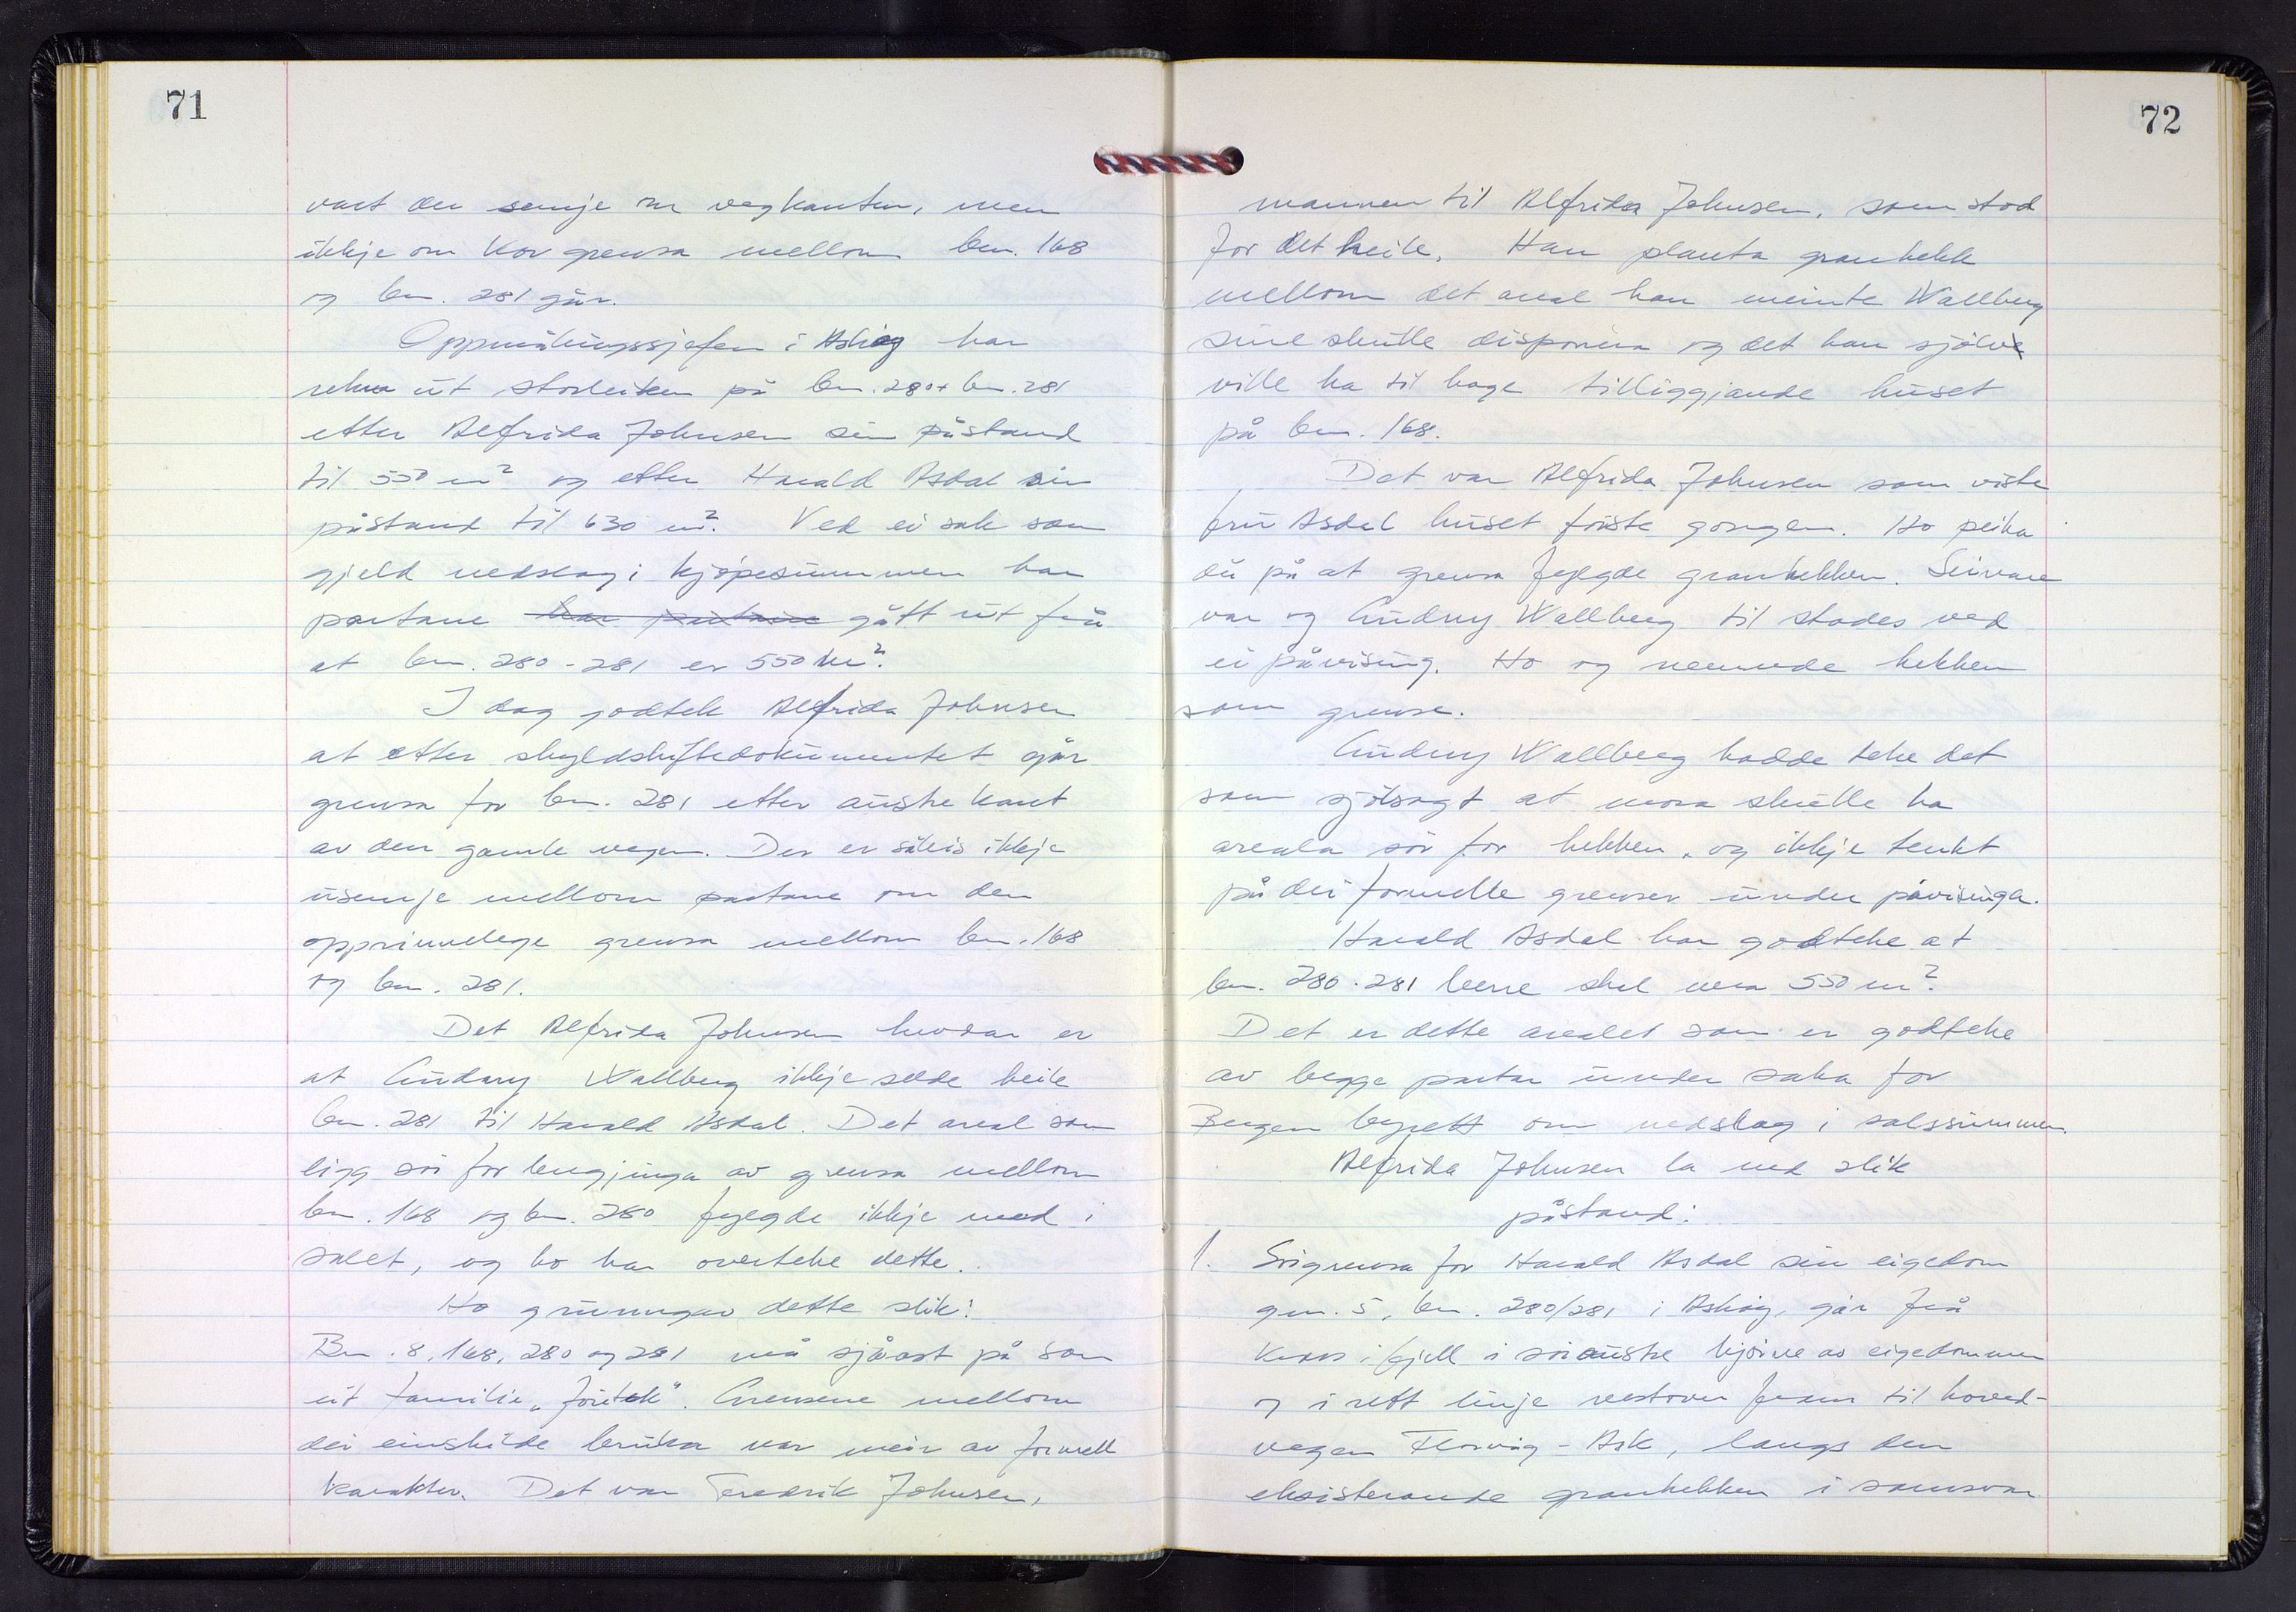 71
vart der semje om vegkanten, men
ikkje om kor grensa mellom bn. 168
og bn. 281 går.
Oppmålingssjefen i Askøy har
rekna ut storleiken på bn. 280 + bn. 281
etter Alfrida Johnsen sin påstand
til 550 m² og etter Harald Asdal sin
påstand til 630 m². Ved ei sak som
gjeld nedslag i kjöpesummen har
partane har partane gått ut frå
at bn. 280 - 281 er 550 m².
I dag godtek Alfrida Johnsen
at etter skyldskiftedokumentet går
grensa for bn. 281 etter austre kant
av den gamle vegen. Der er såleis ikkje
usemje mellom partane om den
opprinnelege grensa mellom bn. 168
og bn. 281.
Det Alfrida Johnsen hevdar er
at Audny Wallberg ikkje selde heile
bn. 281 til Harald Asdal. Det areal som
ligg sör for lengjinga av grensa mellom
bn. 168 og bn. 280 fylgde ikkje med i
salet, og ho har overteke dette.
Ho grunngav dette slik:
Bn. 8, 168, 280 og 281 må sjåast på som
eit familie "företak". Grensene mellom
dei einskilde bruka var meir av formell
karakter. Det var Fredrik Johnsen,
72
mannen til Alfrida Johnsen, som stod
for det heile. Han planta granhekk
mellom det areal han meinte Wallberg
sine skulle disponera og det han sjölv
ville ha til hage tilliggjande huset
på bn. 168.
Det var Alfrida Johnsen som viste
fru Asdal huset förste gongen. Ho peika
då på at grensa fylgde granhekken. Seinare
var og Audny Wallberg til stades ved
ei påvising. Ho og nemnde hekken
som grense.
Audny Wallberg hadde teke det
som sjölsagt at mora skulle ha
areala sör for hekken, og ikkje tenkt
på dei formelle grenser under påvisinga.
Harald Asdal har godteke at
bn. 280 - 281 berre skal vera 550 m².
Det er dette arealet som er godteke
av begge partar under saka for
Bergen byrett om nedslag i salssummen.
Alfrida Johnsen la ned slik
påstand:
1. Sörgrensa for Harald Asdal sin eigedom
gnr. 5, bn. 280/281 i Askøy, går frå
kross i fjell i söraustre hjörne av eigedommen
og i rett linje vestover fram til hoved-
vegen Florvåg - Ask, langs den
eksisterande granhekken i samsvar